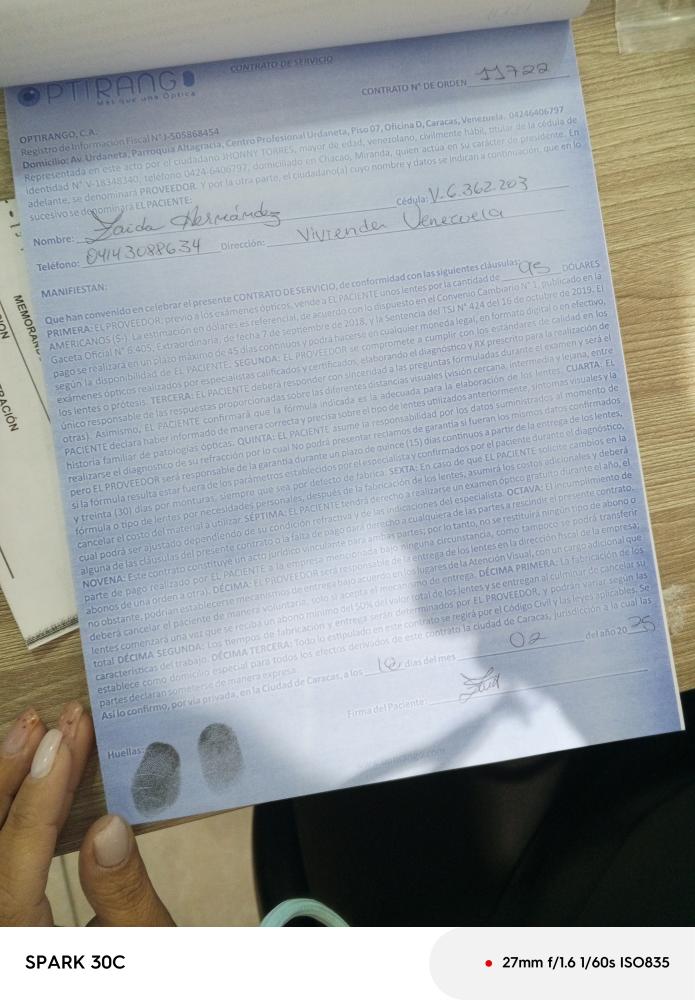 OPTIRANGO
Más que una Óptica
CONTRATO DE SERVICIO
CONTRATO N° DE ORDEN 11722
OPTIRANGO, C.A.
Registro de Información Fiscal N° J-505868454
Domicilio: Av. Urdaneta, Parroquia Altagracia, Centro Profesional Urdaneta, Piso 07, Oficina D, Caracas, Venezuela. 04246406797
Representada en este acto por el ciudadano JHONNY TORRES, mayor de edad, venezolano, civilmente hábil, titular de la cédula de
identidad N° V-18348340, teléfono 0424-6406797, domiciliado en Chacao, Miranda, quien actúa en su carácter de presidente. En
adelante, se denominará PROVEEDOR. Y por la otra parte, el ciudadano(a) cuyo nombre y datos se indican a continuación, que en lo
sucesivo se denominará EL PACIENTE:
Nombre: Zaida Hernández Cédula: V-6.362.203
Teléfono: 04143088634 Dirección: Vivienda Venezuela
MANIFIESTAN:
Que han convenido en celebrar el presente CONTRATO DE SERVICIO, de conformidad con las siguientes cláusulas:
PRIMERA: EL PROVEEDOR: previo a los exámenes ópticos, vende a EL PACIENTE unos lentes por la cantidad de 95 DÓLARES
AMERICANOS (S-). La estimación en dólares es referencial, de acuerdo con lo dispuesto en el Convenio Cambiario N° 1, publicado en la
Gaceta Oficial N° 6.405, Extraordinaria, de fecha 7 de septiembre de 2018, y la Sentencia del TSJ N° 424 del 16 de octubre de 2019. El
pago se realizará en un plazo máximo de 45 días continuos y podrá hacerse en cualquier moneda legal, en formato digital o en efectivo,
según la disponibilidad de EL PACIENTE. SEGUNDA: EL PROVEEDOR se compromete a cumplir con los estándares de calidad en los
exámenes ópticos realizados por especialistas calificados y certificados, elaborando el diagnóstico y RX prescrito para la realización de
los lentes o prótesis. TERCERA: EL PACIENTE deberá responder con sinceridad a las preguntas formuladas durante el examen y será el
único responsable de las respuestas proporcionadas sobre las diferentes distancias visuales (visión cercana, intermedia y lejana, entre
otras). Asimismo, EL PACIENTE confirmará que la fórmula indicada es la adecuada para la elaboración de los lentes. CUARTA: EL
PACIENTE declara haber informado de manera correcta y precisa sobre el tipo de lentes utilizados anteriormente, síntomas visuales y la
historia familiar de patologías ópticas. QUINTA: EL PACIENTE asume la responsabilidad por los datos suministrados al momento de
realizarse el diagnóstico de su refracción por lo cual No podrá presentar reclamos de garantía si fueran los mismos datos confirmados
pero EL PROVEEDOR será responsable de la garantía durante un plazo de quince (15) días continuos a partir de la entrega de los lentes,
y treinta (30) días por monturas, siempre que sea por defecto de fabrica. SEXTA: En caso de que EL PACIENTE solicite cambios en la
fórmula o tipo de lentes por necesidades personales, después de la fabricación de los lentes, asumirá los costos adicionales y deberá
cancelar el costo del material a utilizar. SÉPTIMA: EL PACIENTE tendrá derecho a realizarse un examen óptico gratuito durante el año, el
cual podrá ser ajustado dependiendo de su condición refractiva y de las indicaciones del especialista. OCTAVA: El incumplimiento de
alguna de las cláusulas del presente contrato o la falta de pago dará derecho a cualquiera de las partes a rescindir el presente contrato.
NOVENA: Este contrato constituye un acto jurídico vinculante para ambas partes; por lo tanto, no se restituirá ningún tipo de abono o
parte de pago realizado por EL PACIENTE a la empresa
abonos de una orden a otra). DÉCIMA: EL PROVEEDOR será responsable de la entrega de los lentes en la dirección fiscal de la empresa;
no obstante, podrían establecerse mecanismos de entrega bajo acuerdo en los lugares de la Atención Visual, con un cargo adicional que
deberá cancelar el paciente de manera voluntaria, solo si acepta el mecanismo de entrega. DÉCIMA PRIMERA: La fabricación de los
lentes comenzará una vez que se reciba un abono mínimo del 50% del valor total de los lentes y se entregan al culminar de cancelar su
total DÉCIMA SEGUNDA: Los tiempos de fabricación y entrega serán determinados por EL PROVEEDOR, y podrán variar según las
características del trabajo. DÉCIMA TERCERA: Todo lo estipulado en este contrato se regirá por el Código Civil y las leyes aplicables. Se
establece como domicilio especial para todos los efectos derivados de este contrato la ciudad de Caracas, jurisdicción a la cual las
partes declaran someterse de manera expresa.
Así lo confirmo, por vía privada, en la Ciudad de Caracas, a los 18 días del mes 02 del año 20 25
Firma del Paciente:
Huellas:
SPARK 30C
27mm f/1.6 1/60s ISO835